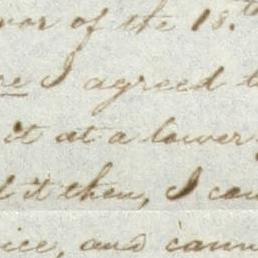 vor of the 18.th
I agreed t
it at a lower
it then, I cou
ice, and cann